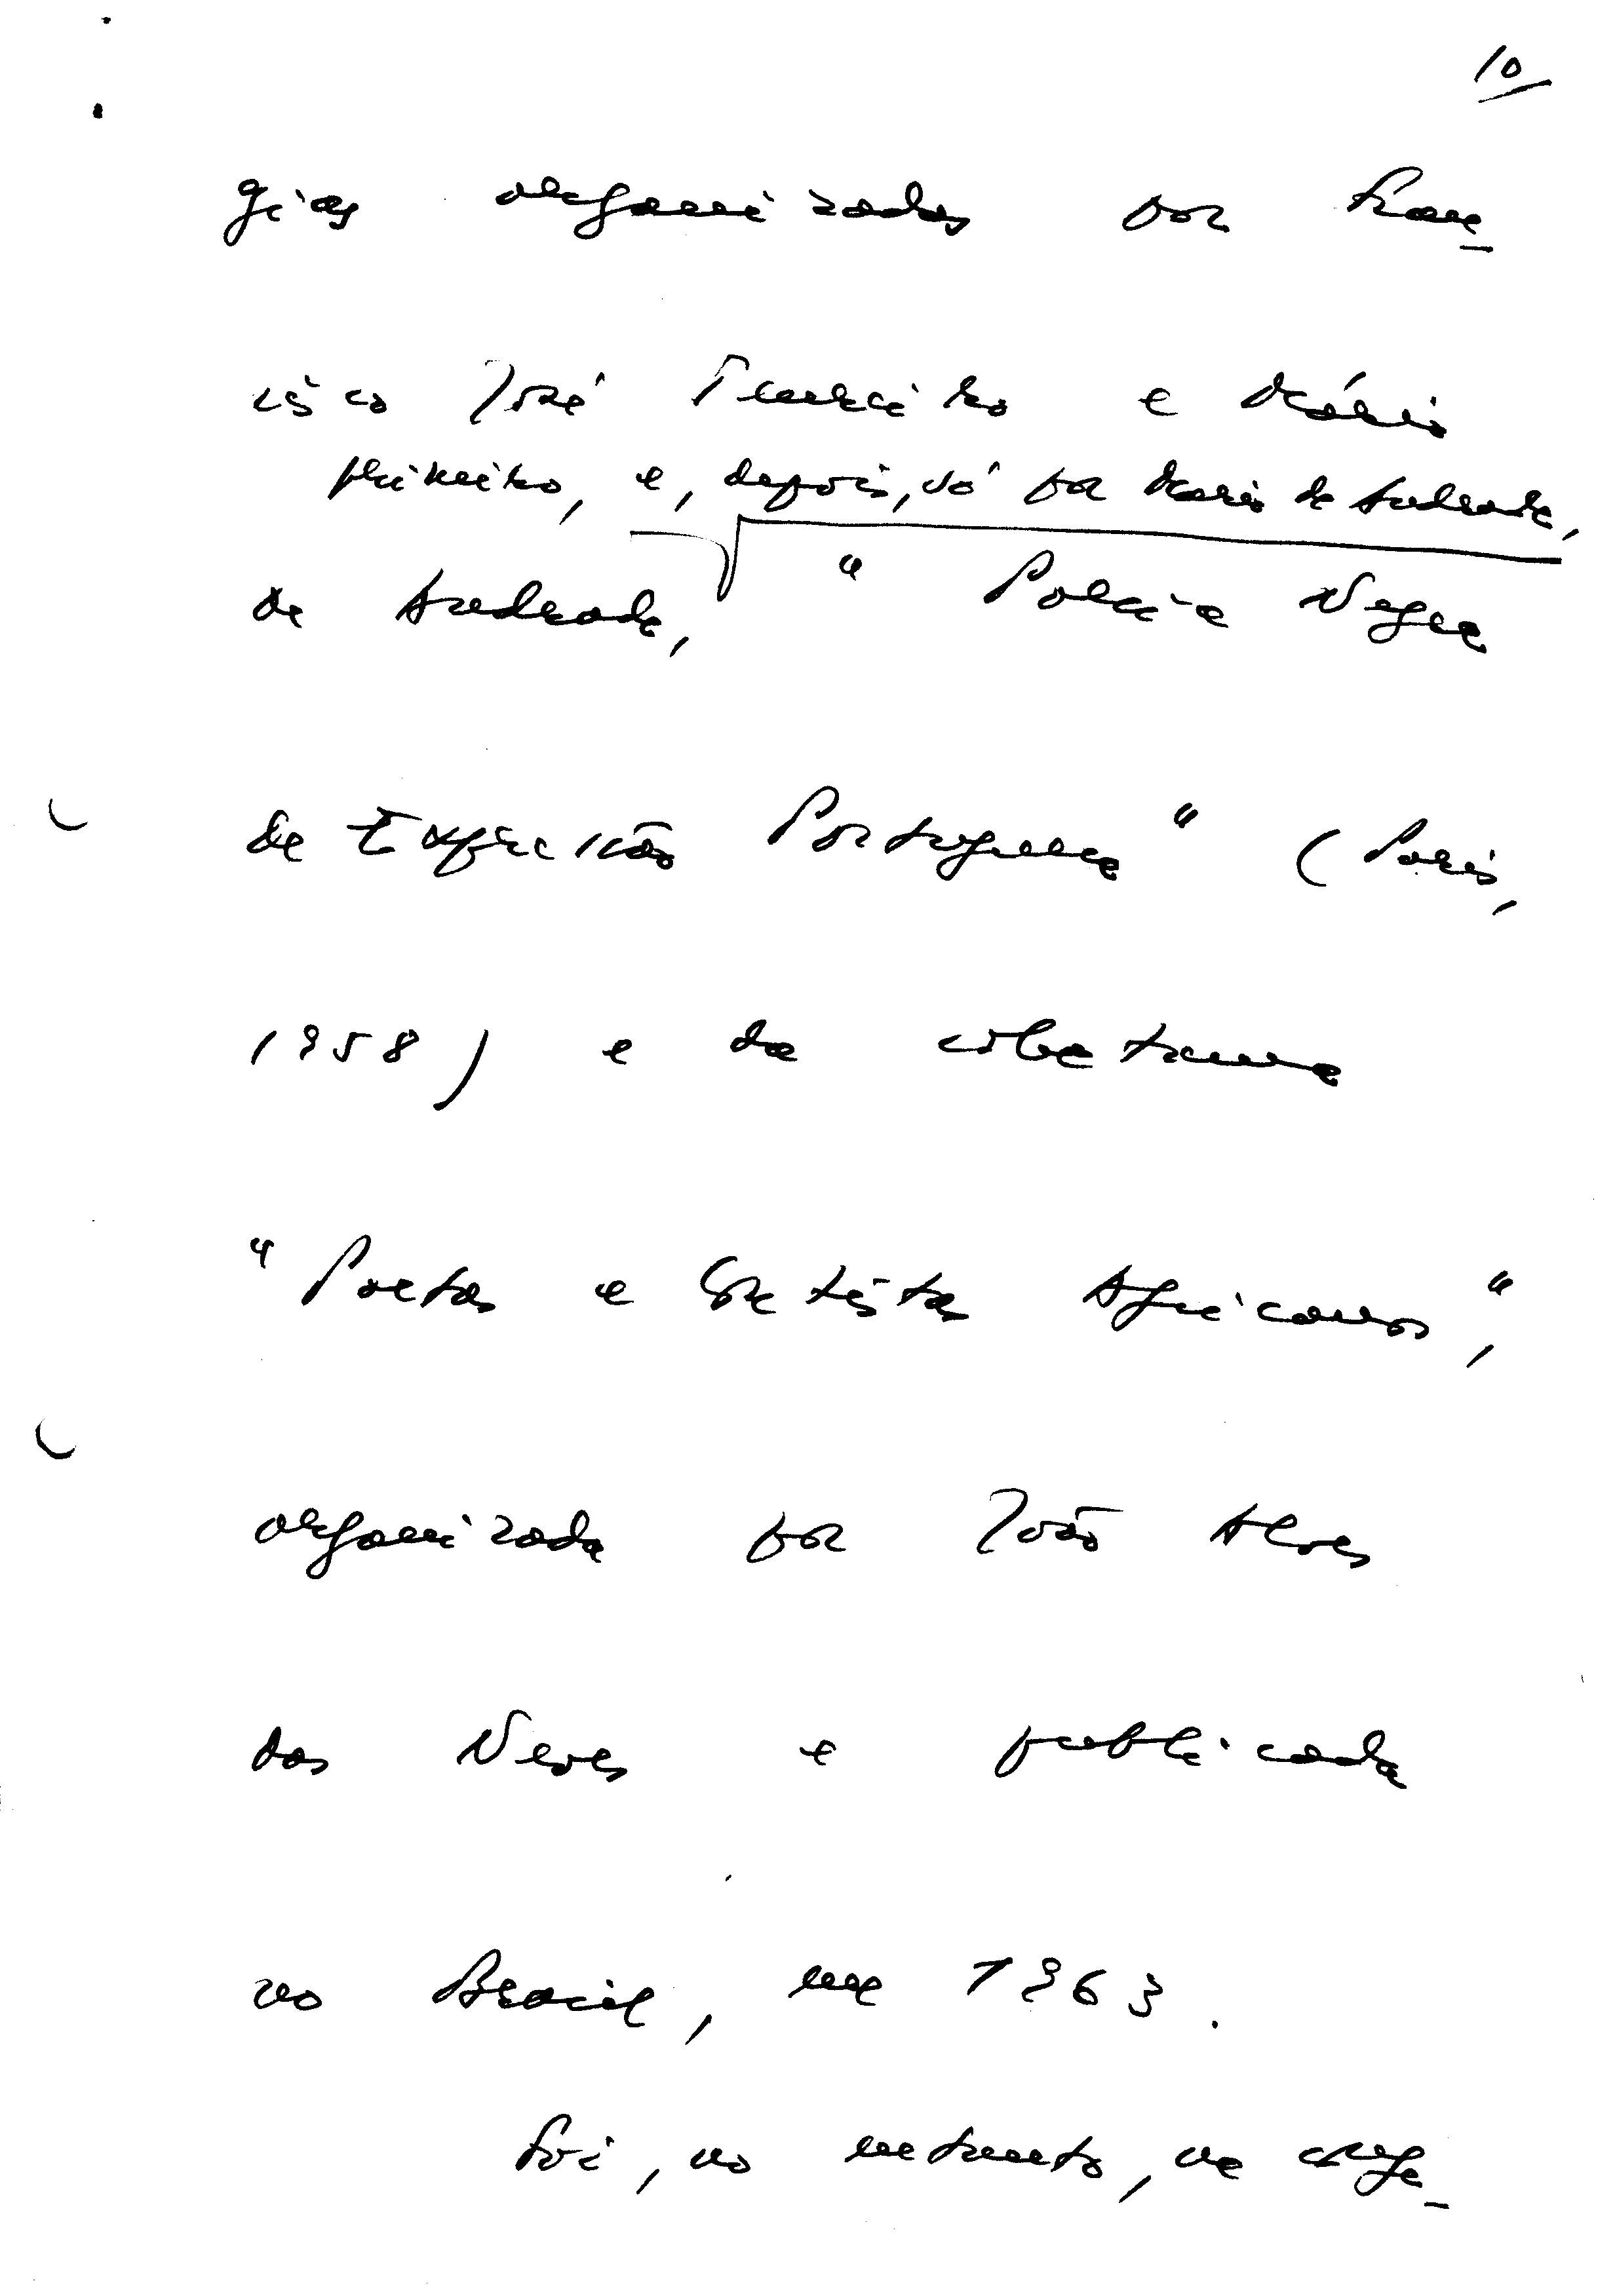 10
gias organizadas por Fran-
cisco José Tenreiro e Mário
primeiro, e, depois, só por Mário de Andrade,
de Andrade, " Poesia Negra
de Expressão Portuguesa " ( Paris,
1958 ) e da coletânea
" Poetas e Contistas Africanos ",
organizada por João Alves
das Neves e publicada
no Brasil, em 1963.
Foi, no entanto, na